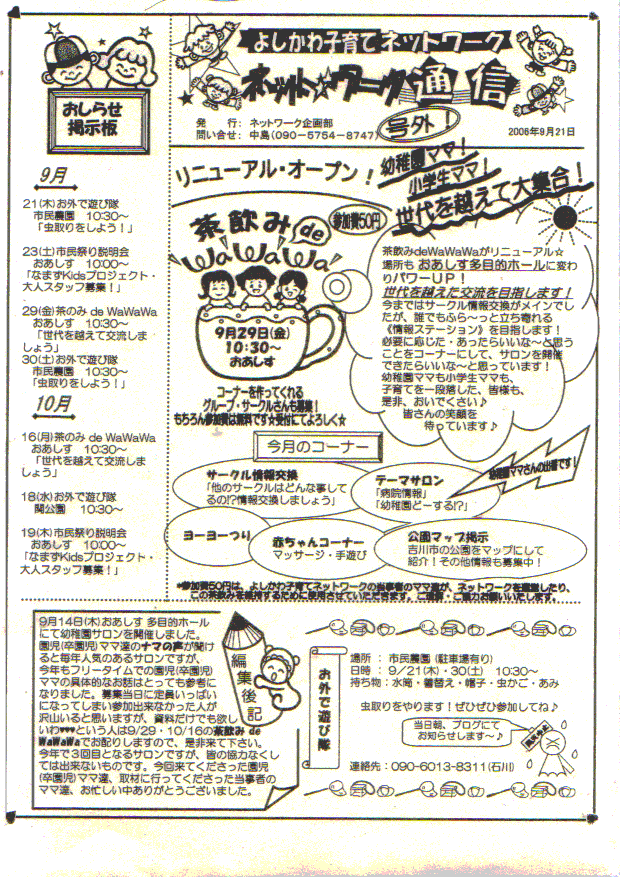 よしかわ子育てネットワーク
ネット☆ワーク通信
号外！
発　行：ネットワーク企画部
問い合せ：中島（090-5754-8747）
2006年9月21日
おしらせ
掲示板
9月
21(木)お外で遊び隊
市民農園　10:30～
「虫取りをしよう！」
23(土)市民祭り説明会
おあしす　10:00～
「なまずKidsプロジェクト・
大人スタッフ募集！」
29(金)茶のみ de WaWaWa
おあしす　10:30～
「世代を越えて交流しま
しょう」
30(土)お外で遊び隊
市民農園　10:30～
「虫取りをしよう！」
10月
16(月)茶のみ de WaWaWa
おあしす　10:30～
「世代を越えて交流しま
しょう」
18(水)お外で遊び隊
関公園　10:30～
19(木)市民祭り説明会
おあしす　10:00～
「なまずKidsプロジェクト・
大人スタッフ募集！」
リニューアル・オープン！
幼稚園ママ！
小学生ママ！
世代を越えて大集合！
茶飲み de
WaWaWa
参加費50円
9月29日(金)
10:30～
おあしす
コーナーを作ってくれる
グループ・サークルさんも募集！
もちろん参加費は無料です☆受付にてよろしく☆
茶飲みdeWaWaWaがリニューアル☆
場所も おあしす多目的ホールに変わ
りパワーUP！
世代を越えた交流を目指します！
今まではサークル情報交換がメインでし
たが、誰でもふらっ～と立ち寄れる
《情報ステーション》を目指します！
必要に応じた・あったらいいな～と思う
ことをコーナーにして、サロンを開催
できたらいいな～と思っています！
幼稚園ママも小学生ママも、
子育てを一段落した、皆様も、
是非、おいでください♪
皆さんの笑顔を
待っています♪
今月のコーナー
サークル情報交換
「他のサークルはどんな事して
るの!?情報交換しましょう」
テーマサロン
「病院情報」
「幼稚園どーする!?」
幼稚園ママさんの出番です！
ヨーヨーつり
赤ちゃんコーナー
マッサージ・手遊び
公園マップ掲示
吉川市の公園をマップにして
紹介！その他情報も募集中！
*参加費50円は、よしかわ子育てネットワークの当事者のママ達が、ネットワークを運営したり、
この茶飲みを維持するために使用させていただきます。ご理解・ご協力お願いいたします。
9月14日(木)おあしす 多目的ホール
にて幼稚園サロンを開催しました。
園児(卒園児)ママ達のナマの声が聞け
ると毎年人気のあるサロンですが、
今年もフリータイムでの園児(卒園児)
ママの具体的なお話はとっても参考に
なりました。募集当日に定員いっぱい
になってしまい参加出来なかった人が
沢山いると思いますが、資料だけでも欲し
いわ♥♥♥という人は9/29・10/16の茶飲み de
WaWaWaでお配りしますので、是非来て下さい。
今年で３回目となるサロンですが、皆の協力なくし
ては出来ないものです。今回来てくださった園児
(卒園児)ママ達、取材に行ってくださった当事者の
ママ達、お忙しい中ありがとうございました。
編集後記
お外で遊び隊
場所：市民農園（駐車場有り）
日時：９／21(木)・30(土)　10:30～
持ち物：水筒・着替え・帽子・虫かご・あみ
虫取りをやります！ぜひぜひ参加してね♪
当日朝、ブログにて
お知らせします～♪
連絡先：090-6013-8311(石川)